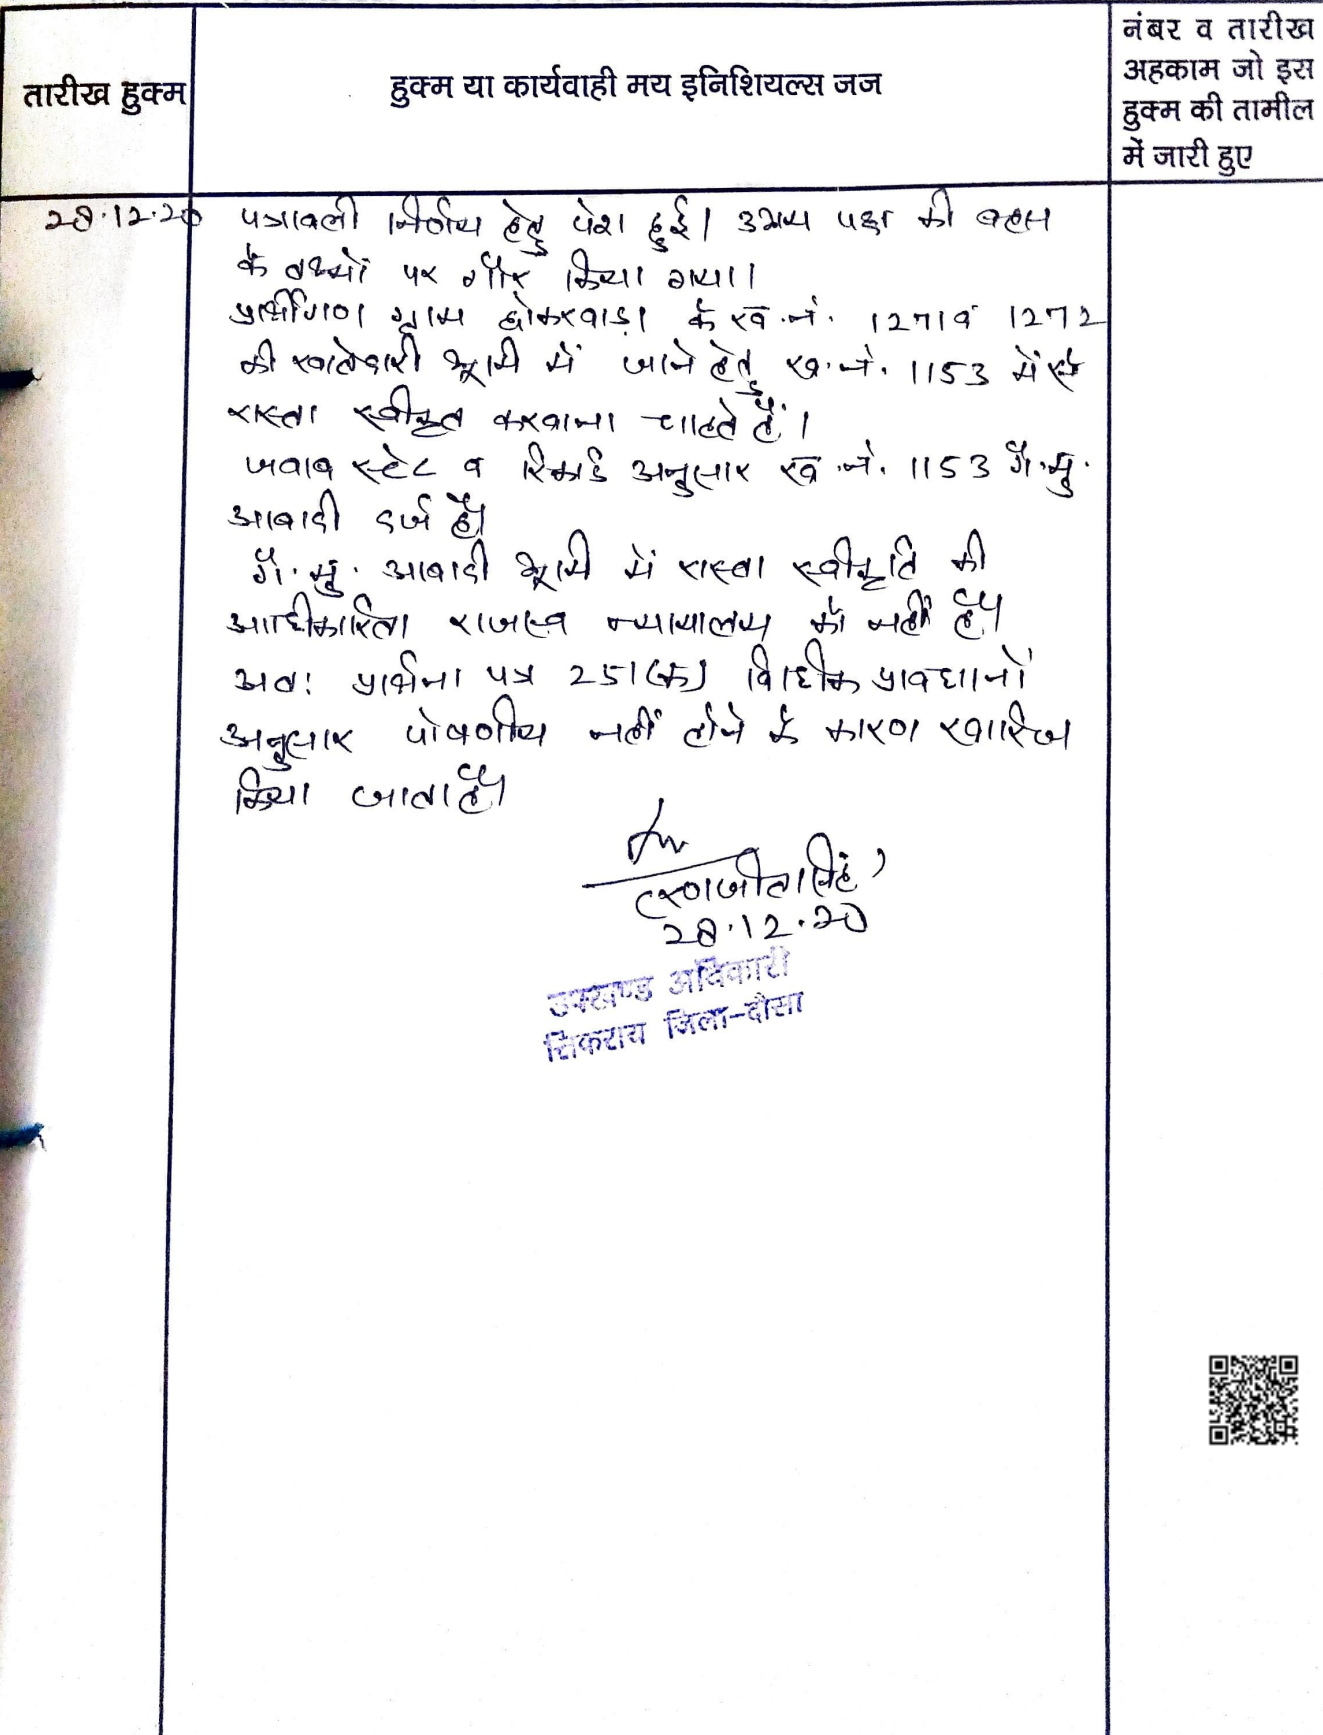 तारीख हुक्म
हुक्म या कार्यवाही मय इनिशियल्स जज
नंबर व तारीख
अहकाम जो इस
हुक्म की तामील
में जारी हुए
28.12.20
पत्रावली निर्णय हेतु पेश हुई। उभय पक्ष की बहस
के तथ्यों पर गौर किया गया।
प्रार्थीगण ग्राम धोकरवाड़ा के ख.नं. 1271 व 1272
की खातेदारी भूमि में जाने हेतु ख.नं. 1153 में से
रास्ता स्वीकृत करवाना चाहते हैं।
जवाब स्टेट व रिकार्ड अनुसार ख.नं. 1153 गै.मु.
आबादी दर्ज है।
गै.मु. आबादी भूमि में रास्ता स्वीकृति की
अधिकारिता राजस्व न्यायालय को नहीं है।
अतः प्रार्थना पत्र 251(क) विधिक प्रावधानों
अनुसार पोषणीय नहीं होने के कारण खारिज
किया जाता है।
(रणजीत सिंह)
28.12.20
उपखण्ड अधिकारी
सिकराय जिला-दौसा